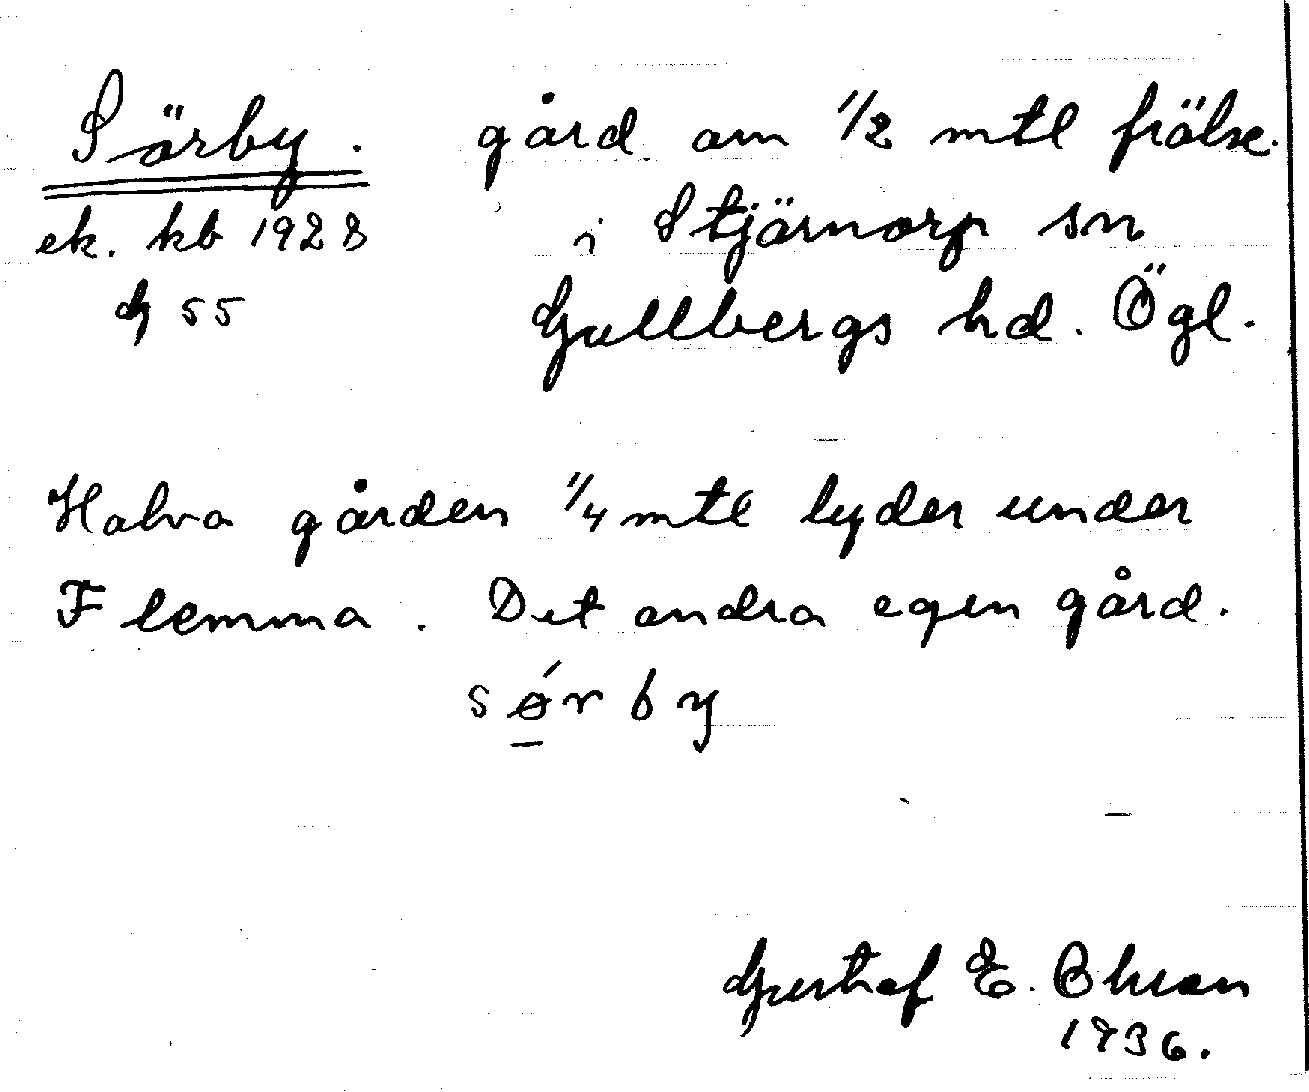 Sörby. gård om 1/2 mtl frälse.
ek. kb 1928 i Stjärnorp sn
dj 55 Gullbergs hd. Ögl.
Halva gården 1/4 mtl lyder under
Flemma. Det andra egen gård.
sǿrby
Gustaf E. Ohlson
1936.